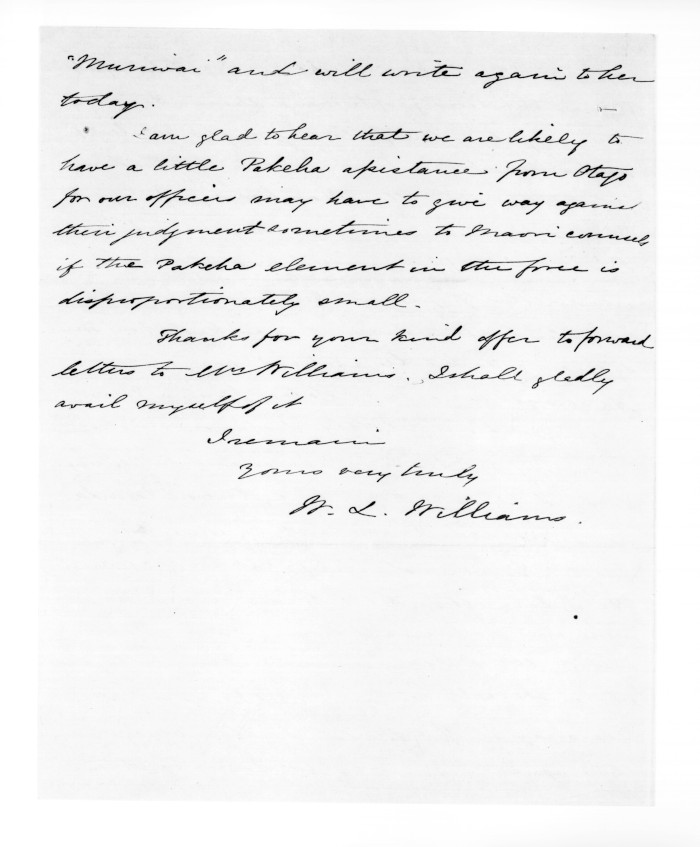 "Muriwai" and will write again to her
today.
I am glad to hear that we are likely to
have a little Pakeha assistance from Otago
for our officers may have to give way against
their judgment sometimes to Maori counsels
if the Pakeha element in the force is
disproportionately small.
Thanks for your kind offer to forward
letters to Mrs Williams. I shall gladly
avail myself of it
I remain
Yours very truly
W. L. Williams.